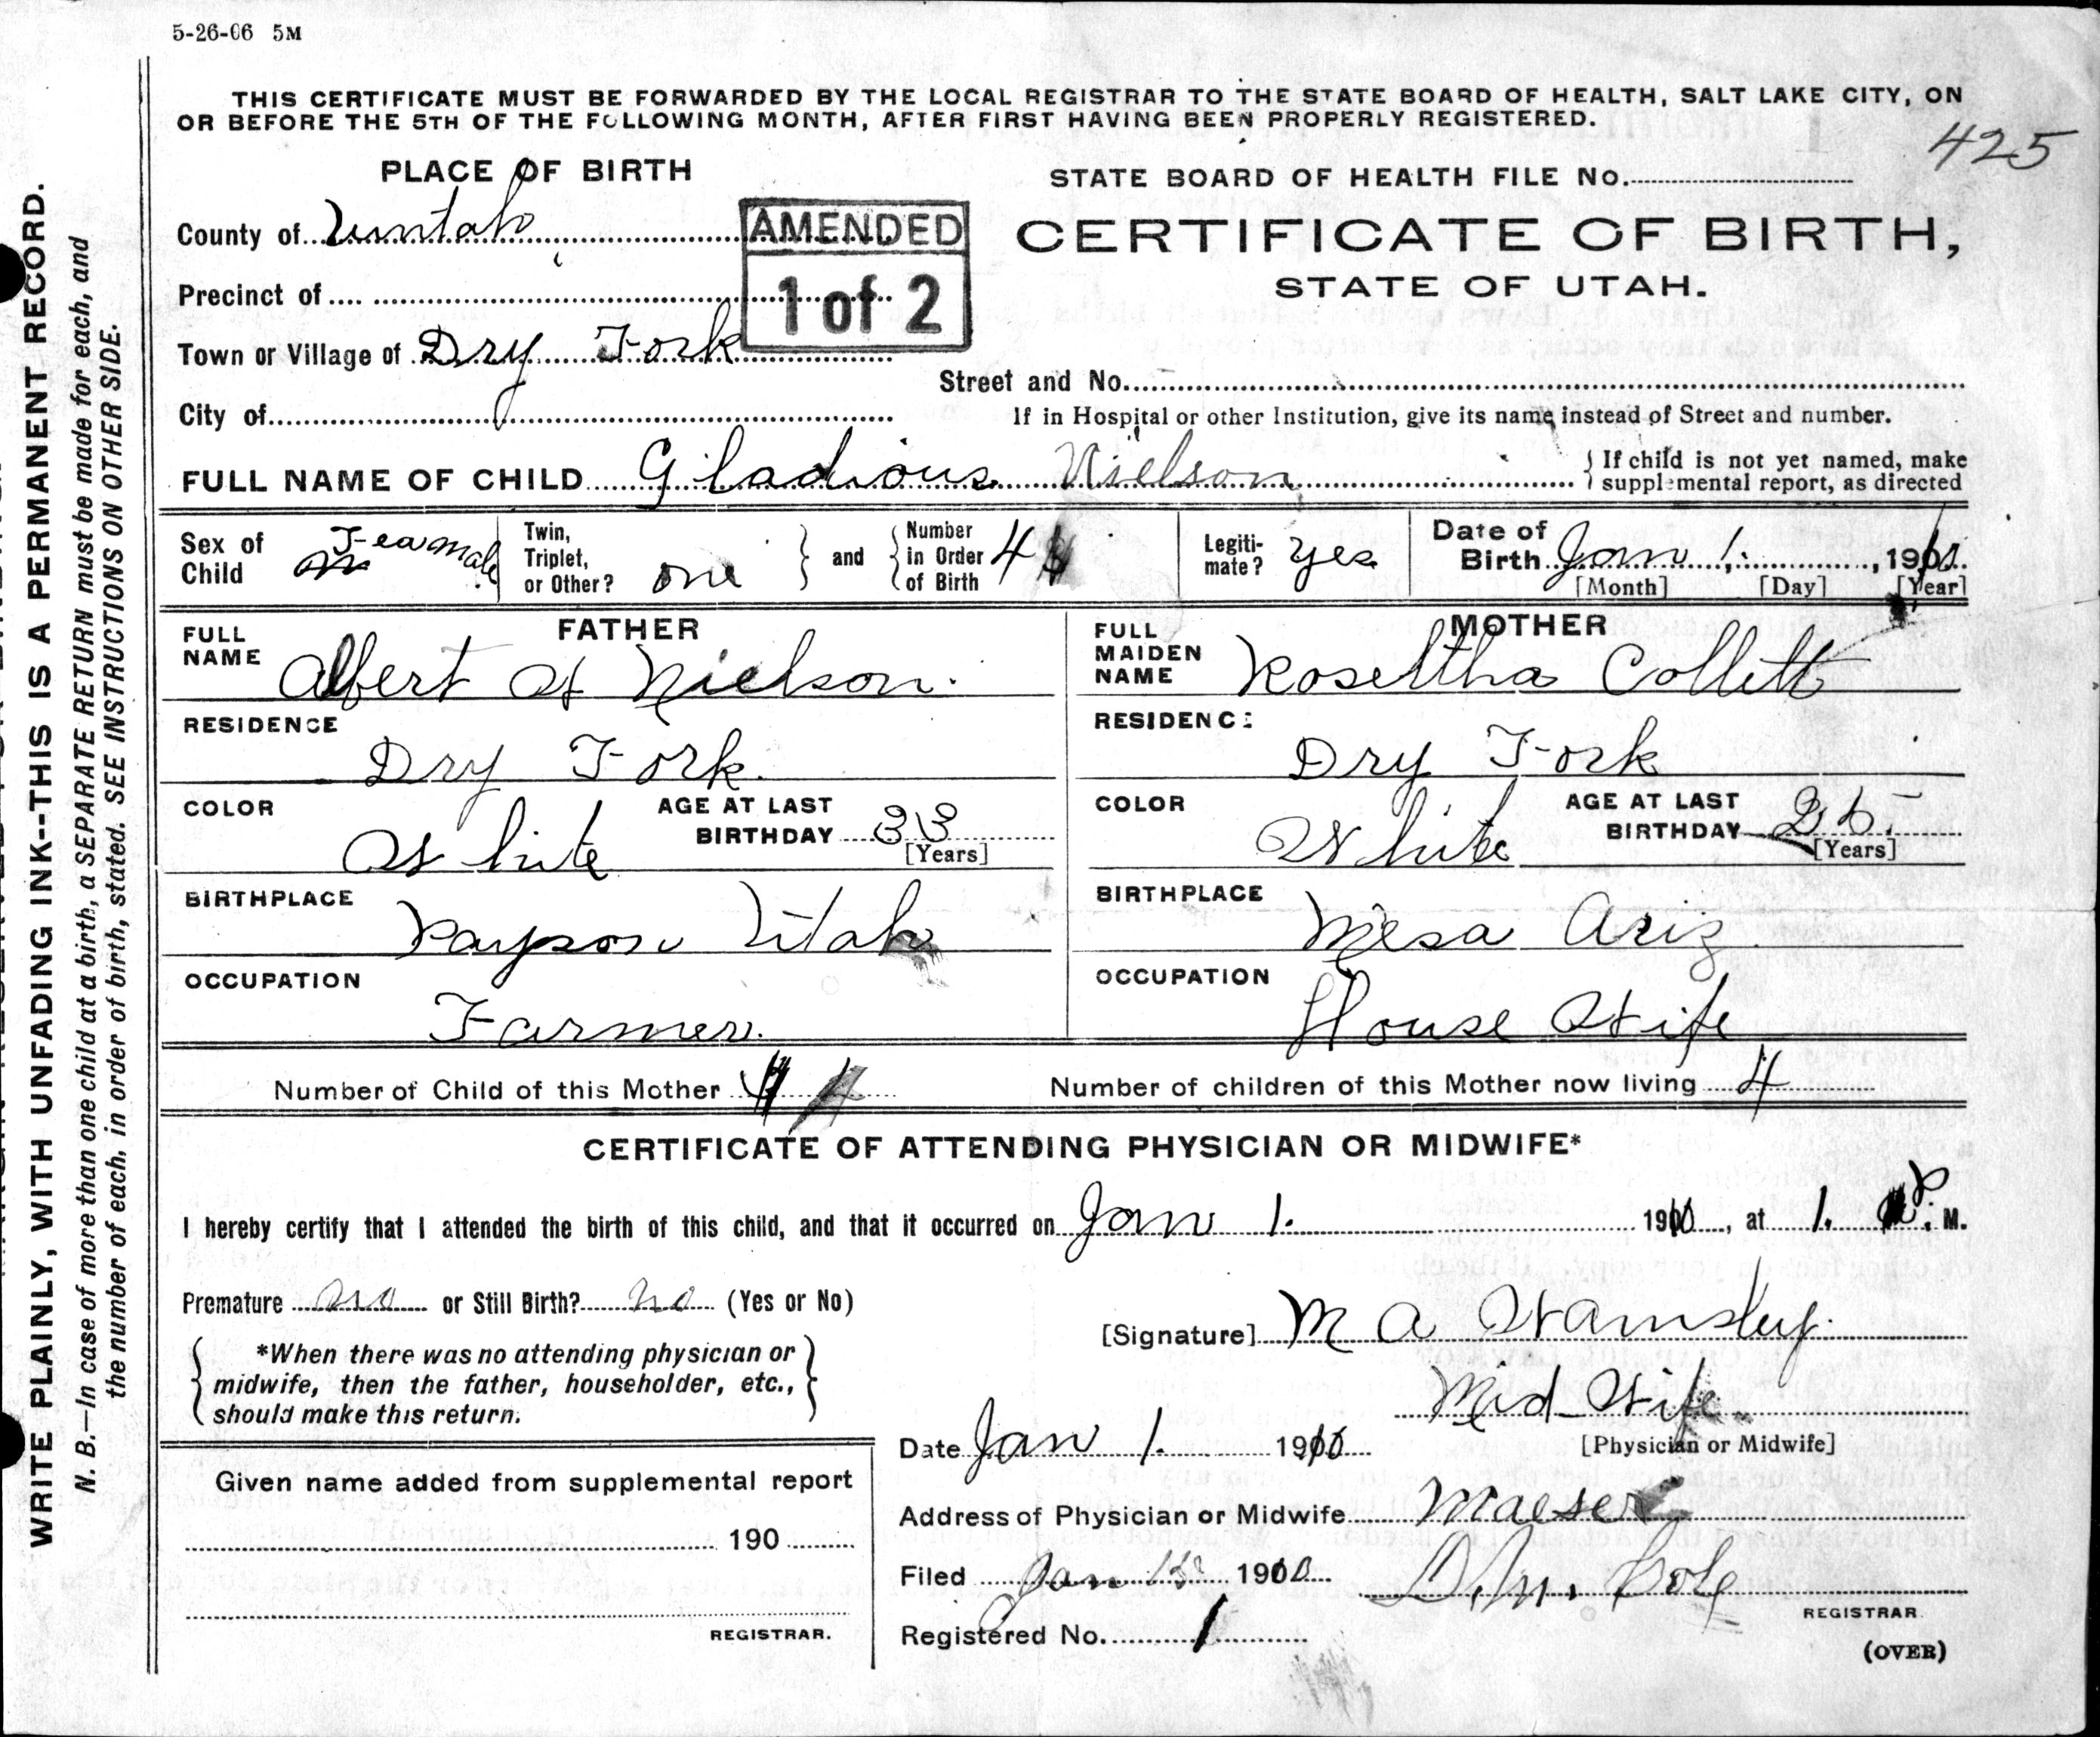 5-26-06 5M
THIS CERTIFICATE MUST BE FORWARDED BY THE LOCAL REGISTRAR TO THE STATE BOARD OF HEALTH, SALT LAKE CITY, ON
OR BEFORE THE 5TH OF THE FOLLOWING MONTH, AFTER FIRST HAVING BEEN PROPERLY REGISTERED.
425
PLACE OF BIRTH
STATE BOARD OF HEALTH FILE No.
County of Uintah
AMENDED
1 of 2
CERTIFICATE OF BIRTH,
STATE OF UTAH.
Precinct of
Town or Village of Dry Fork
Street and No.
City of
If in Hospital or other Institution, give its name instead of Street and number.
FULL NAME OF CHILD Gladious Nielson
If child is not yet named, make
supplemental report, as directed
Sex of Child Feamale
Twin, Triplet, or Other? one
and
Number in Order of Birth 4
Legiti-mate? yes
Date of Birth Jan 1, 1910
[Month] [Day] [Year]
FATHER
FULL NAME Albert W Nielson.
RESIDENCE
Dry Fork.
COLOR
White
AGE AT LAST BIRTHDAY 33
[Years]
BIRTHPLACE
Payson Utah
OCCUPATION
Farmer.
MOTHER
FULL MAIDEN NAME Roseltha Collett
RESIDENCE
Dry Fork
COLOR
White
AGE AT LAST BIRTHDAY
[Years]
BIRTHPLACE
Mesa Ariz
OCCUPATION
House Wife
Number of Child of this Mother 4
Number of children of this Mother now living 4
CERTIFICATE OF ATTENDING PHYSICIAN OR MIDWIFE*
I hereby certify that I attended the birth of this child, and that it occurred on Jan 1. 1910, at 1. P. M.
Premature no or Still Birth? no (Yes or No)
[Signature] M A Wamsley.
*When there was no attending physician or
midwife, then the father, householder, etc.,
should make this return.
Mid Wife
[Physician or Midwife]
Date Jan 1. 1910
Given name added from supplemental report
190
REGISTRAR.
Address of Physician or Midwife Maeser
Filed Jan 1910
REGISTRAR.
Registered No. 1
(OVER)
WRITE PLAINLY, WITH UNFADING INK--THIS IS A PERMANENT RECORD.
N. B.—In case of more than one child at a birth, a SEPARATE RETURN must be made for each, and
the number of each, in order of birth, stated. SEE INSTRUCTIONS ON OTHER SIDE.